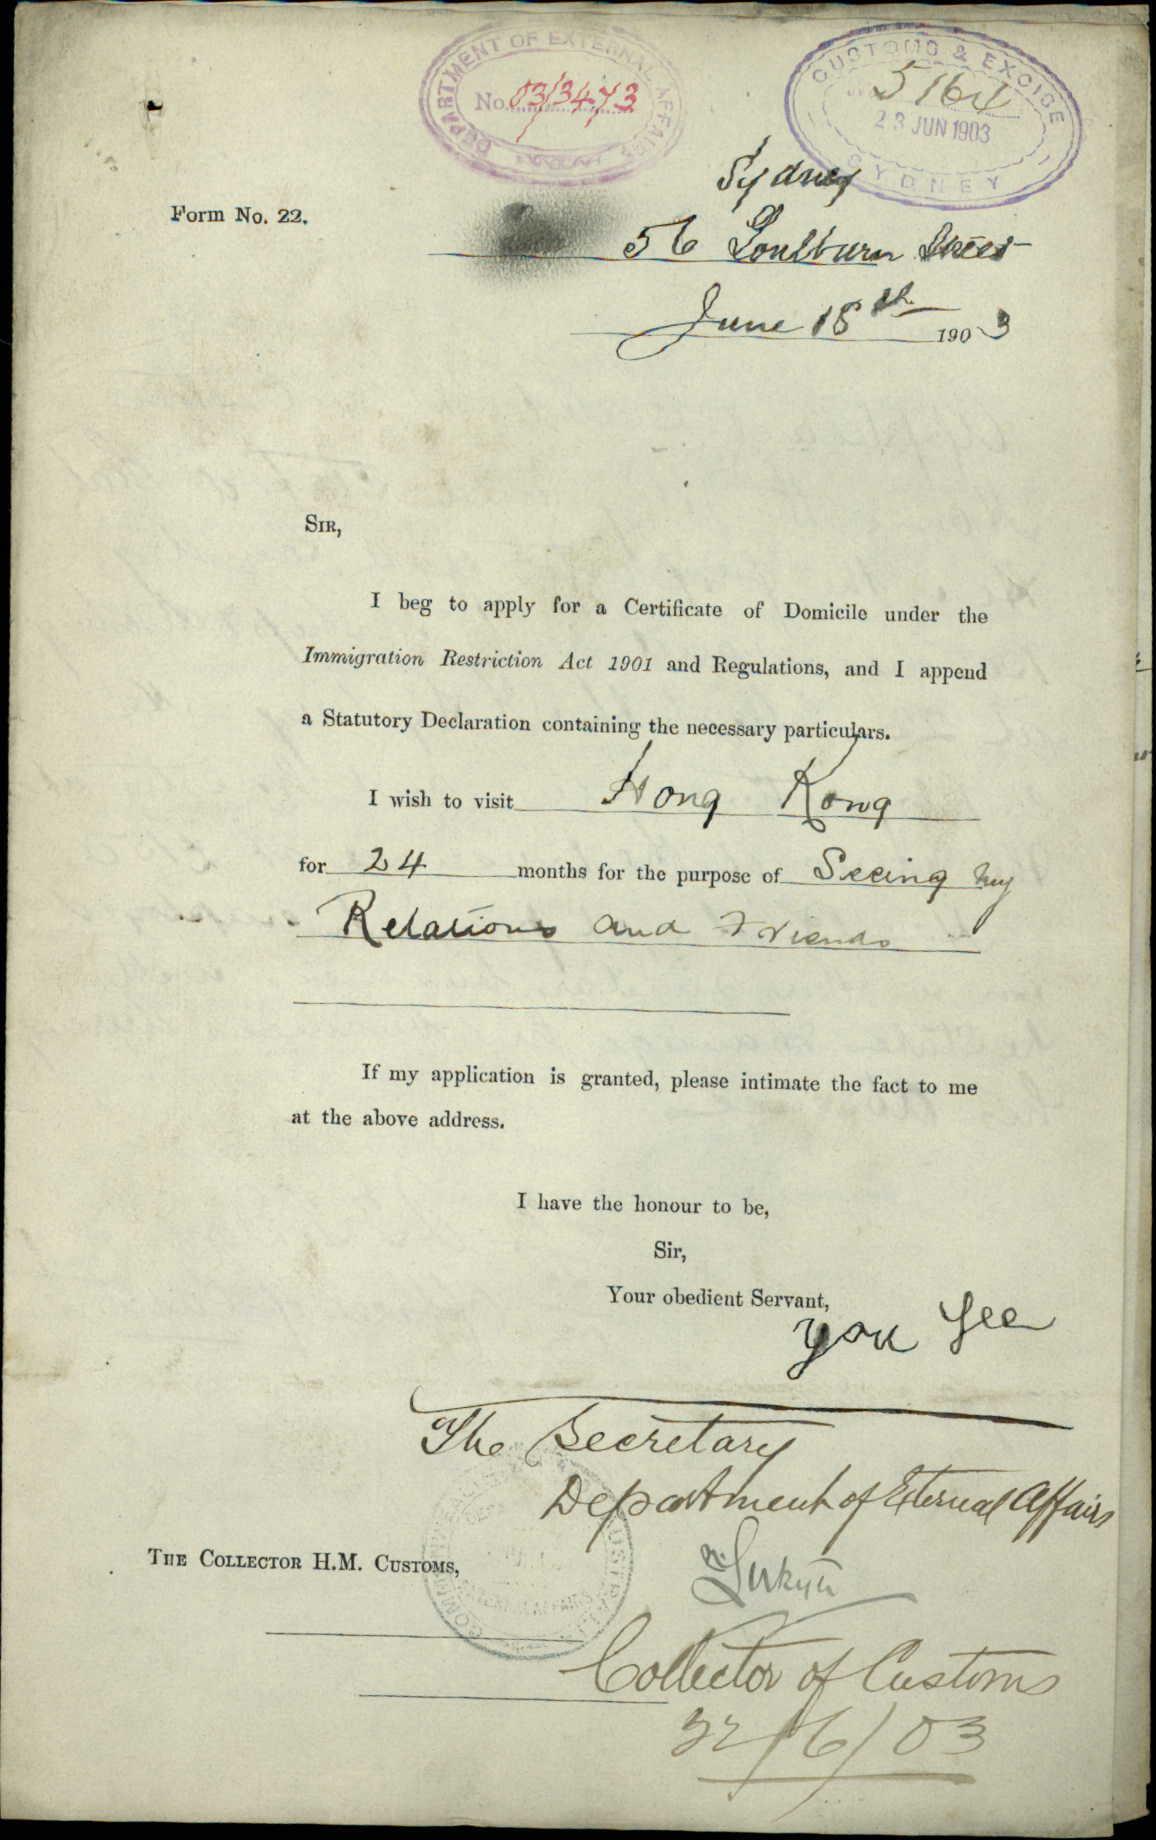 DEPARTMENT OF EXTERNAL AFFAIRS
No. 03/3473
CUSTOMS & EXCISE
5164
23 JUN 1903
SYDNEY
Sydney
Form No. 22.
56 Goulburn Street
June 18th 1903
SIR,
I beg to apply for a Certificate of Domicile under the
Immigration Restriction Act 1901 and Regulations, and I append
a Statutory Declaration containing the necessary particulars.
I wish to visit Hong Kong
for 24 months for the purpose of Seeing my
Relations and Friends
If my application is granted, please intimate the fact to me
at the above address.
I have the honour to be,
Sir,
Your obedient Servant,
You Yee
The Secretary
Department of External Affairs
THE COLLECTOR H.M. CUSTOMS,
Collector of Customs
22/6/03